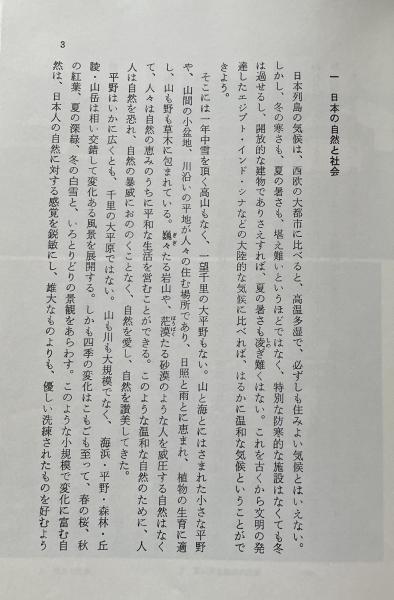 3
一 日本の自然と社会
日本列島の気候は、西欧の大都市に比べると、高温多湿で、必ずしも住みよい気候とはいえない。
しかし、冬の寒さも、夏の暑さも、堪え難いというほどではなく、特別な防寒的な施設はなくても冬
は過せるし、開放的な建物でありさえすれば、夏の暑さも凌ぎ難くはない。これを古くから文明の発
達したエジプト・インド・シナなどの大陸的な気候に比べれば、はるかに温和な気候ということがで
きよう。
そこには一年中雪を頂く高山もなく、一望千里の大平野もない。山と海とにはさまれた小さな平野
や、山間の小盆地、川沿いの平地が人々の住む場所であり、日照と雨とに恵まれ、植物の生育に適
し、山も野も草木に包まれている。巍々たる岩山や、茫漠たる砂漠のような人を威圧する自然はなく
て、人々は自然の恵みのうちに平和な生活を営むことができる。このような温和な自然のために、人
人は自然を恐れ、自然の暴威におののくことなく、自然を愛し、自然を讃美してきた。
平野はいかに広くとも、千里の大平原ではない。山も川も大規模でなく、海浜・平野・森林・丘
陵・山岳は相い交錯して変化ある風景を展開する。しかも四季の変化はこもごも至って、春の桜、秋
の紅葉、夏の深緑、冬の白雪と、いろとりどりの景観をあらわす。このような小規模で変化に富む自
然は、日本人の自然に対する感覚を鋭敏にし、雄大なものよりも、優しい洗練されたものを好むよう